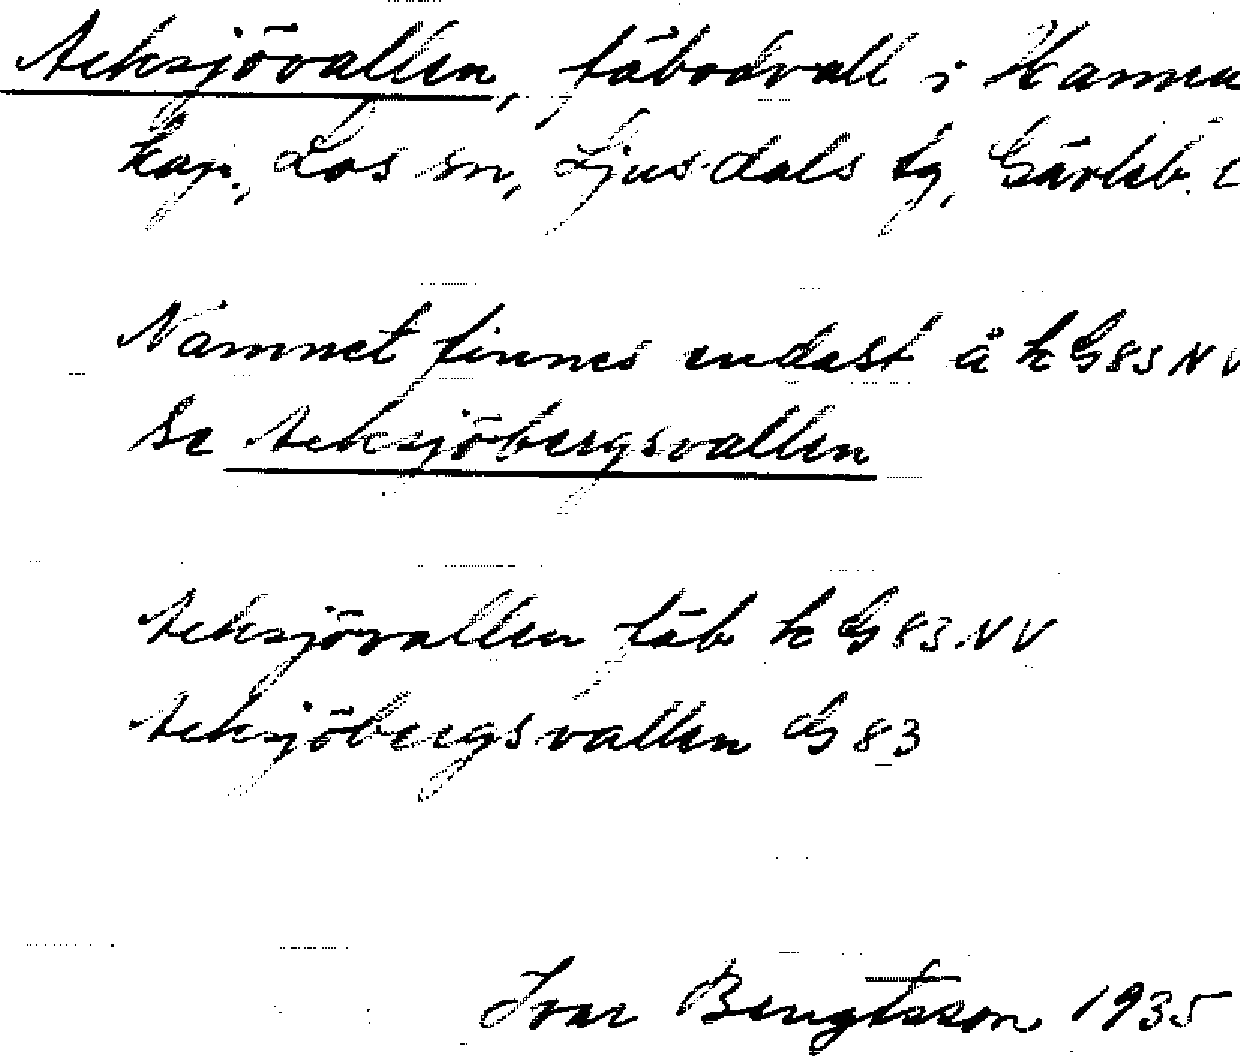 Acksjövallen, fäbodvall i Hamra
kap., Los sn, Ljusdals tg, Gävleb. l
Namnet finnes endast å k G83NV
Se Acksjöbergsvallen
Acksjövallen fäb k G83NV
Acksjöbergsvallen G83
Ivar Bengtsson 1935